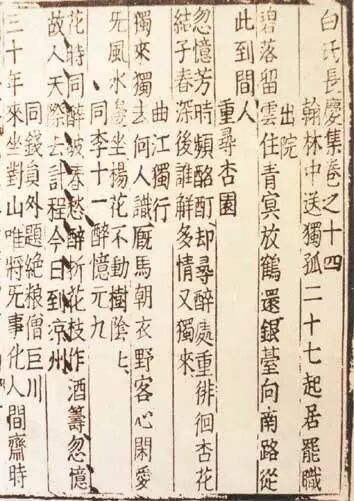 白氏長慶集卷之十四
翰林中送獨孤二十七起居罷職
出院
碧落留雲住青冥放鶴還銀臺向南路從
此到間人
重尋杏園
忽憶芳時頻酩酊却尋醉處重徘徊杏花
結子春深後誰解多情又獨來
曲江獨行
獨來獨去何人識廐馬朝衣野客心閑愛
无風水邊坐楊花不動樹陰〻
同李十一醉憶元九
花時同醉破春愁醉折花枝作酒籌忽憶
故人天際去計程今日到涼州
同錢員外題絶粮僧巨川
三十年來坐對山唯將无事化人間齋時